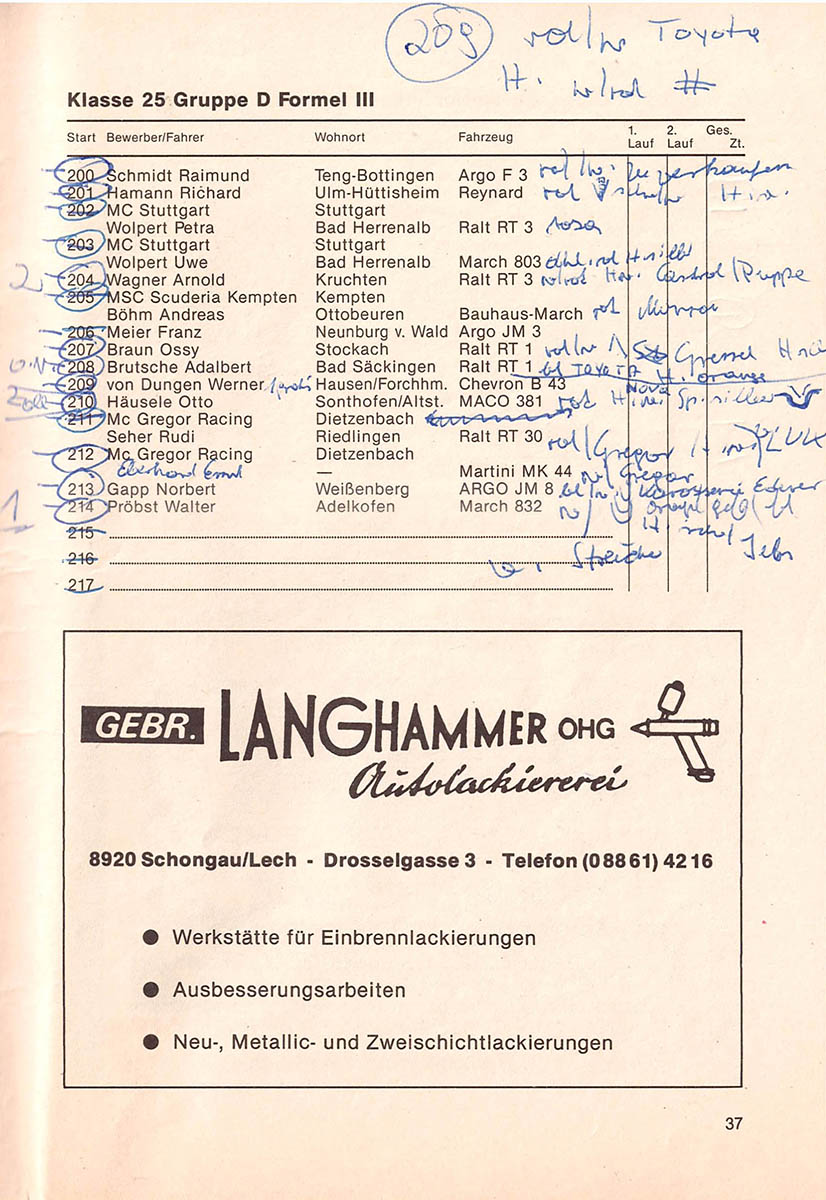 209 rot/w Toyota
H.
Klasse 25 Gruppe D Formel III
Start Bewerber/Fahrer Wohnort Fahrzeug 1. Lauf 2. Lauf Ges. Zt.
200 Schmidt Raimund Teng-Bottingen Argo F 3 zu verkaufen
201 Hamann Richard Ulm-Hüttisheim Reynard rot
202 MC Stuttgart Stuttgart
Wolpert Petra Bad Herrenalb Ralt RT 3 rosa
203 MC Stuttgart Stuttgart
Wolpert Uwe Bad Herrenalb March 803
2. 204 Wagner Arnold Kruchten Ralt RT 3 Castrol/Puppe
205 MSC Scuderia Kempten Kempten
Böhm Andreas Ottobeuren Bauhaus-March rot
206 Meier Franz Neunburg v. Wald Argo JM 3
207 Braun Ossy Stockach Ralt RT 1 rot/w
208 Brutsche Adalbert Bad Säckingen Ralt RT 1 bl TOYOTA H. orange
209 von Dungen Werner Hausen/Forchhm. Chevron B 43 Nova
210 Häusele Otto Sonthofen/Altst. MACO 381 rot
211 Mc Gregor Racing Dietzenbach
Seher Rudi Riedlingen Ralt RT 30 rot/Gregor
212 Mc Gregor Racing Dietzenbach
Eberhard Ernst — Martini MK 44 Gregor
213 Gapp Norbert Weißenberg ARGO JM 8 Karosserie
1 214 Pröbst Walter Adelkofen March 832
215
216
217
GEBR. LANGHAMMER OHG
Autolackiererei
8920 Schongau/Lech - Drosselgasse 3 - Telefon (0 88 61) 42 16
● Werkstätte für Einbrennlackierungen
● Ausbesserungsarbeiten
● Neu-, Metallic- und Zweischichtlackierungen
37